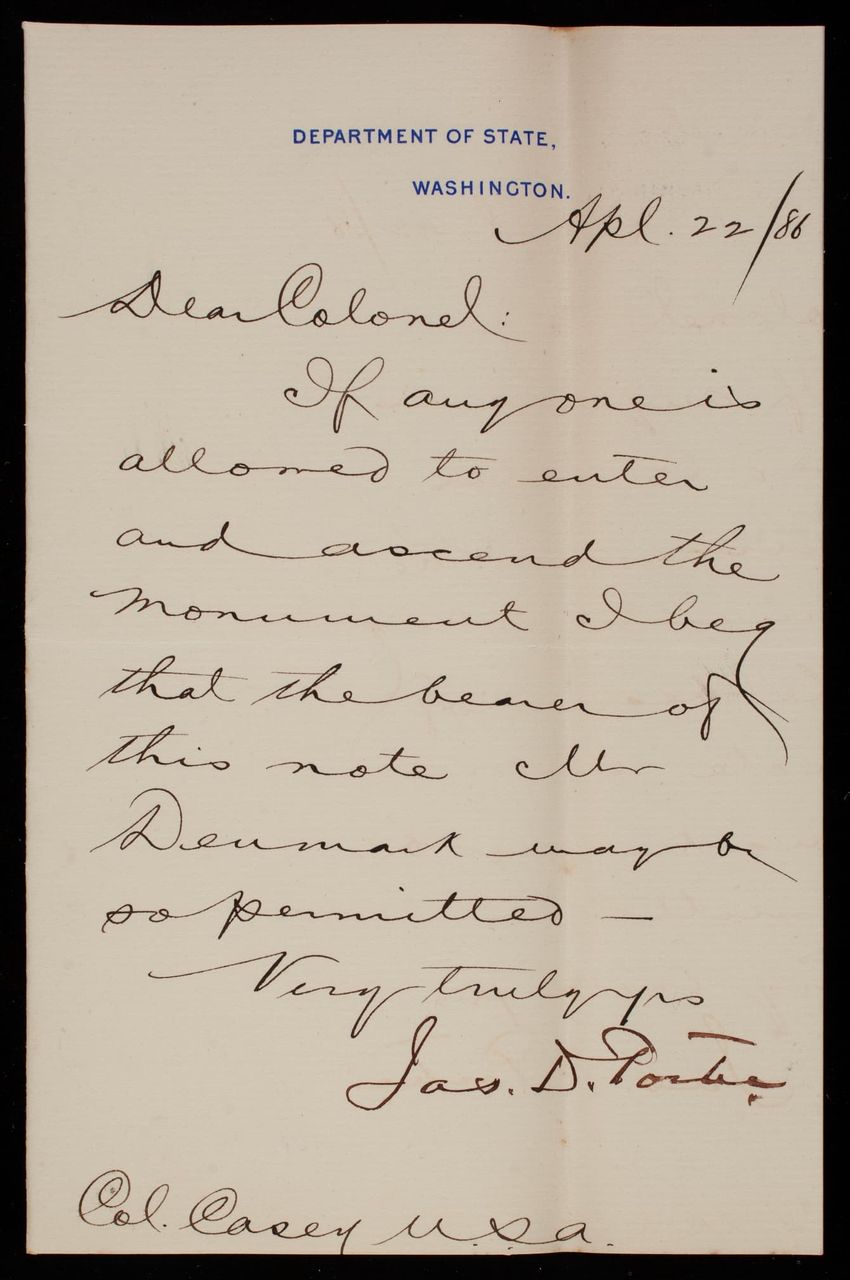 DEPARTMENT OF STATE,
WASHINGTON.
Apl. 22/86
Dear Colonel:
If any one is
allowed to enter
and ascend the
monument I beg
that the bearer of
this note Mr
Denmark may be
so permitted —
Very truly yrs
Jas. D. Porter.
Col. Casey U.S.A.